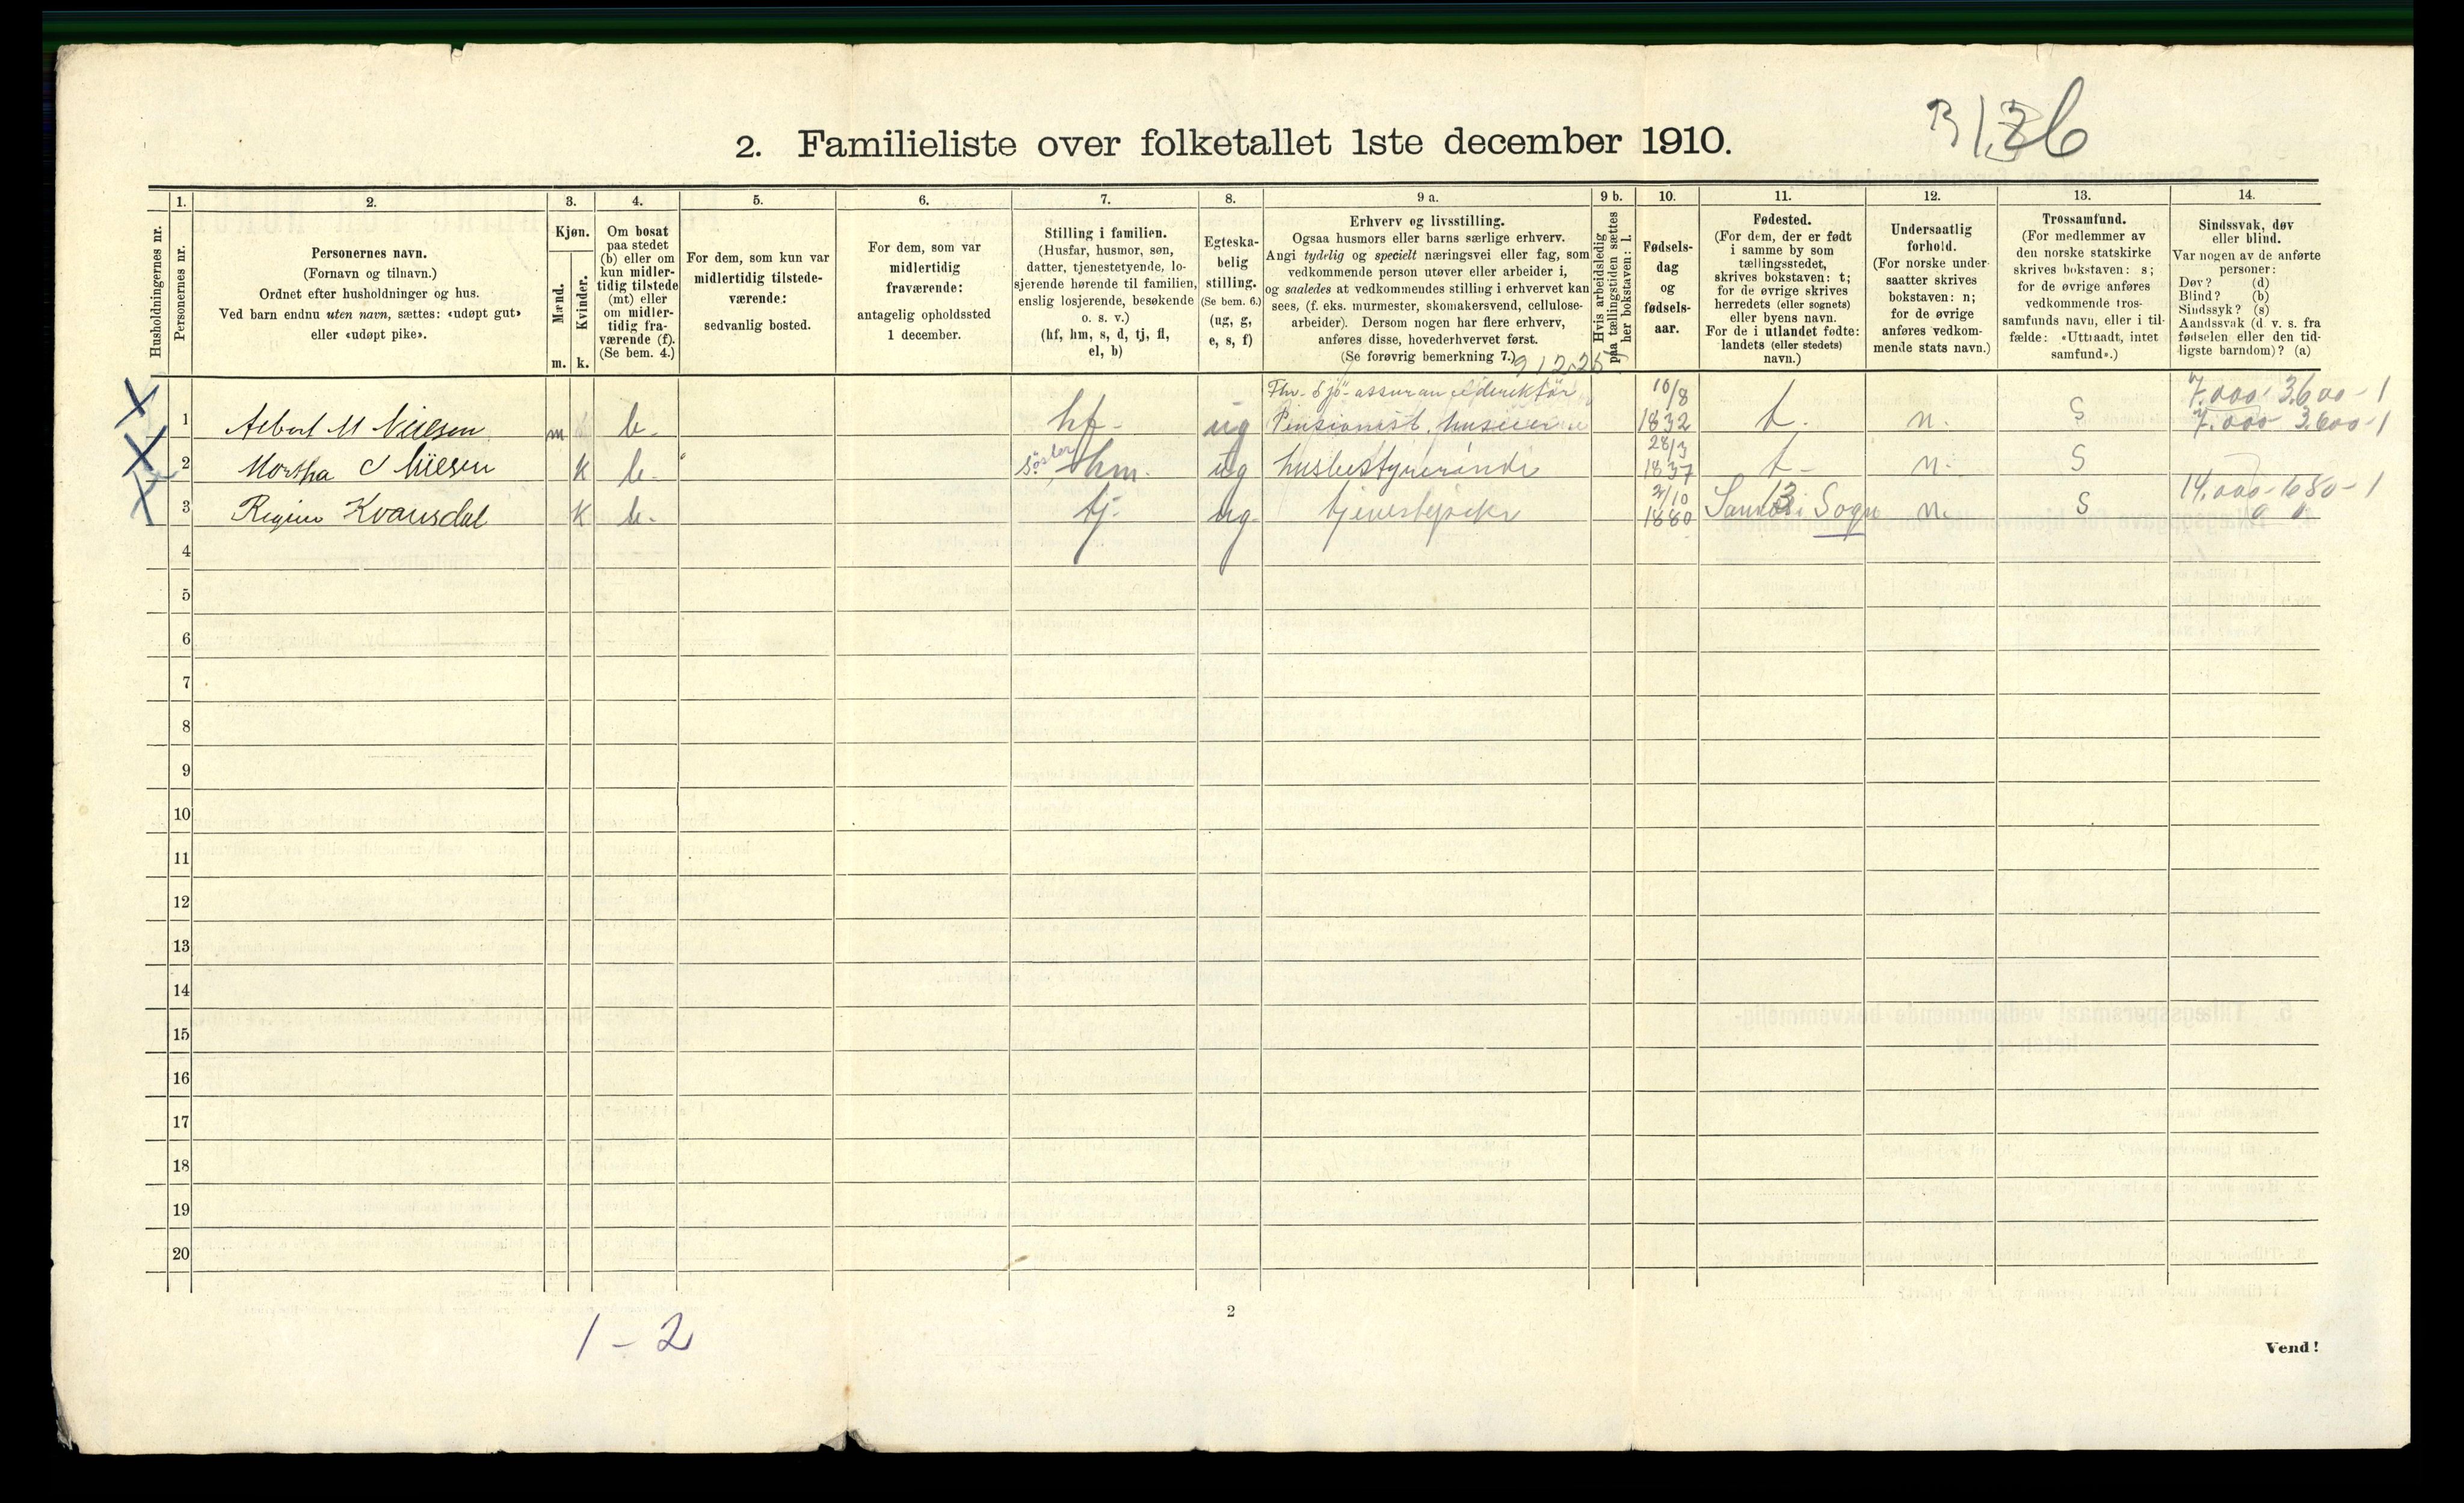 3126
2. Familieliste over folketallet 1ste december 1910.
Husholdningernes nr.
1. Personernes nr.
2. Personernes navn.
(Fornavn og tilnavn.)
Ordnet efter husholdninger og hus.
Ved barn endnu uten navn, sættes: «udøpt gut»
eller «udøpt pike».
3. Kjøn.
Mænd. m.
Kvinder. k.
4. Om bosat
paa stedet
(b) eller om
kun midler-
tidig tilstede
(mt) eller
om midler-
tidig fra-
værende (f).
(Se bem. 4.)
5. For dem, som kun var
midlertidig tilstede-
værende:
sedvanlig bosted.
6. For dem, som var
midlertidig
fraværende:
antagelig opholdssted
1 december.
7. Stilling i familien.
(Husfar, husmor, søn,
datter, tjenestetyende, lo-
sjerende hørende til familien,
enslig losjerende, besøkende
o. s. v.)
(hf, hm, s, d, tj, fl,
el, b)
8. Egteska-
belig
stilling.
(Se bem. 6.)
(ug, g,
e, s, f)
9 a. Erhverv og livsstilling.
Ogsaa husmors eller barns særlige erhverv.
Angi tydelig og specielt næringsvei eller fag, som
vedkommende person utøver eller arbeider i,
og saaledes at vedkommendes stilling i erhvervet kan
sees, (f. eks. murmester, skomakersvend, cellulose-
arbeider). Dersom nogen har flere erhverv,
anføres disse, hovederhvervet først.
(Se forøvrig bemerkning 7.)
9 b. Hvis arbeidsledig
paa tællingstiden sættes
her bokstaven: l.
10. Fødsels-
dag
og
fødsels-
aar.
11. Fødested.
(For dem, der er født
i samme by som
tællingsstedet,
skrives bokstaven: t;
for de øvrige skrives
herredets (eller sognets)
eller byens navn.
For de i utlandet fødte:
landets (eller stedets)
navn.)
12. Undersaatlig
forhold.
(For norske under-
saatter skrives
bokstaven: n;
for de øvrige
anføres vedkom-
mende stats navn.)
13. Trossamfund.
(For medlemmer av
den norske statskirke
skrives bokstaven: s;
for de øvrige anføres
vedkommende tros-
samfunds navn, eller i til-
fælde: «Uttraadt, intet
samfund».)
14. Sindssvak, døv
eller blind.
Var nogen av de anførte
personer:
Døv? (d)
Blind? (b)
Sindssyk? (s)
Aandssvak (d. v. s. fra
fødselen eller den tid-
ligste barndom)? (a)
9 12.25
Fhv. Sjö-assurancedirektör 10/8 7.000 - 3.600 - 1
1 Albert M Nielsen m b. hf - ug Pensionist 1832 t. n. S 7.000 3.600-1
28/3
2 Martha C Nielsen k b. söster hm. ug husbestyrerinde 1837 t - n. S
2/10 14.000-1680-1
3 Regine Kvamsdal k b. tj. ug. tjenestepike 1880 13 Sogn n. S 0 0
4
5
6
7
8
9
10
11
12
13
14
15
16
17
18
19
20
2
1 - 2
Vend!